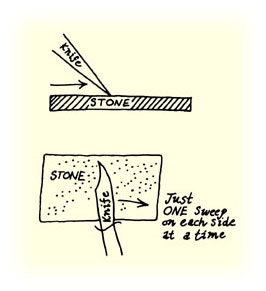 Knife
STONE
STONE
Knife
Just
ONE sweep
on each side
at a time